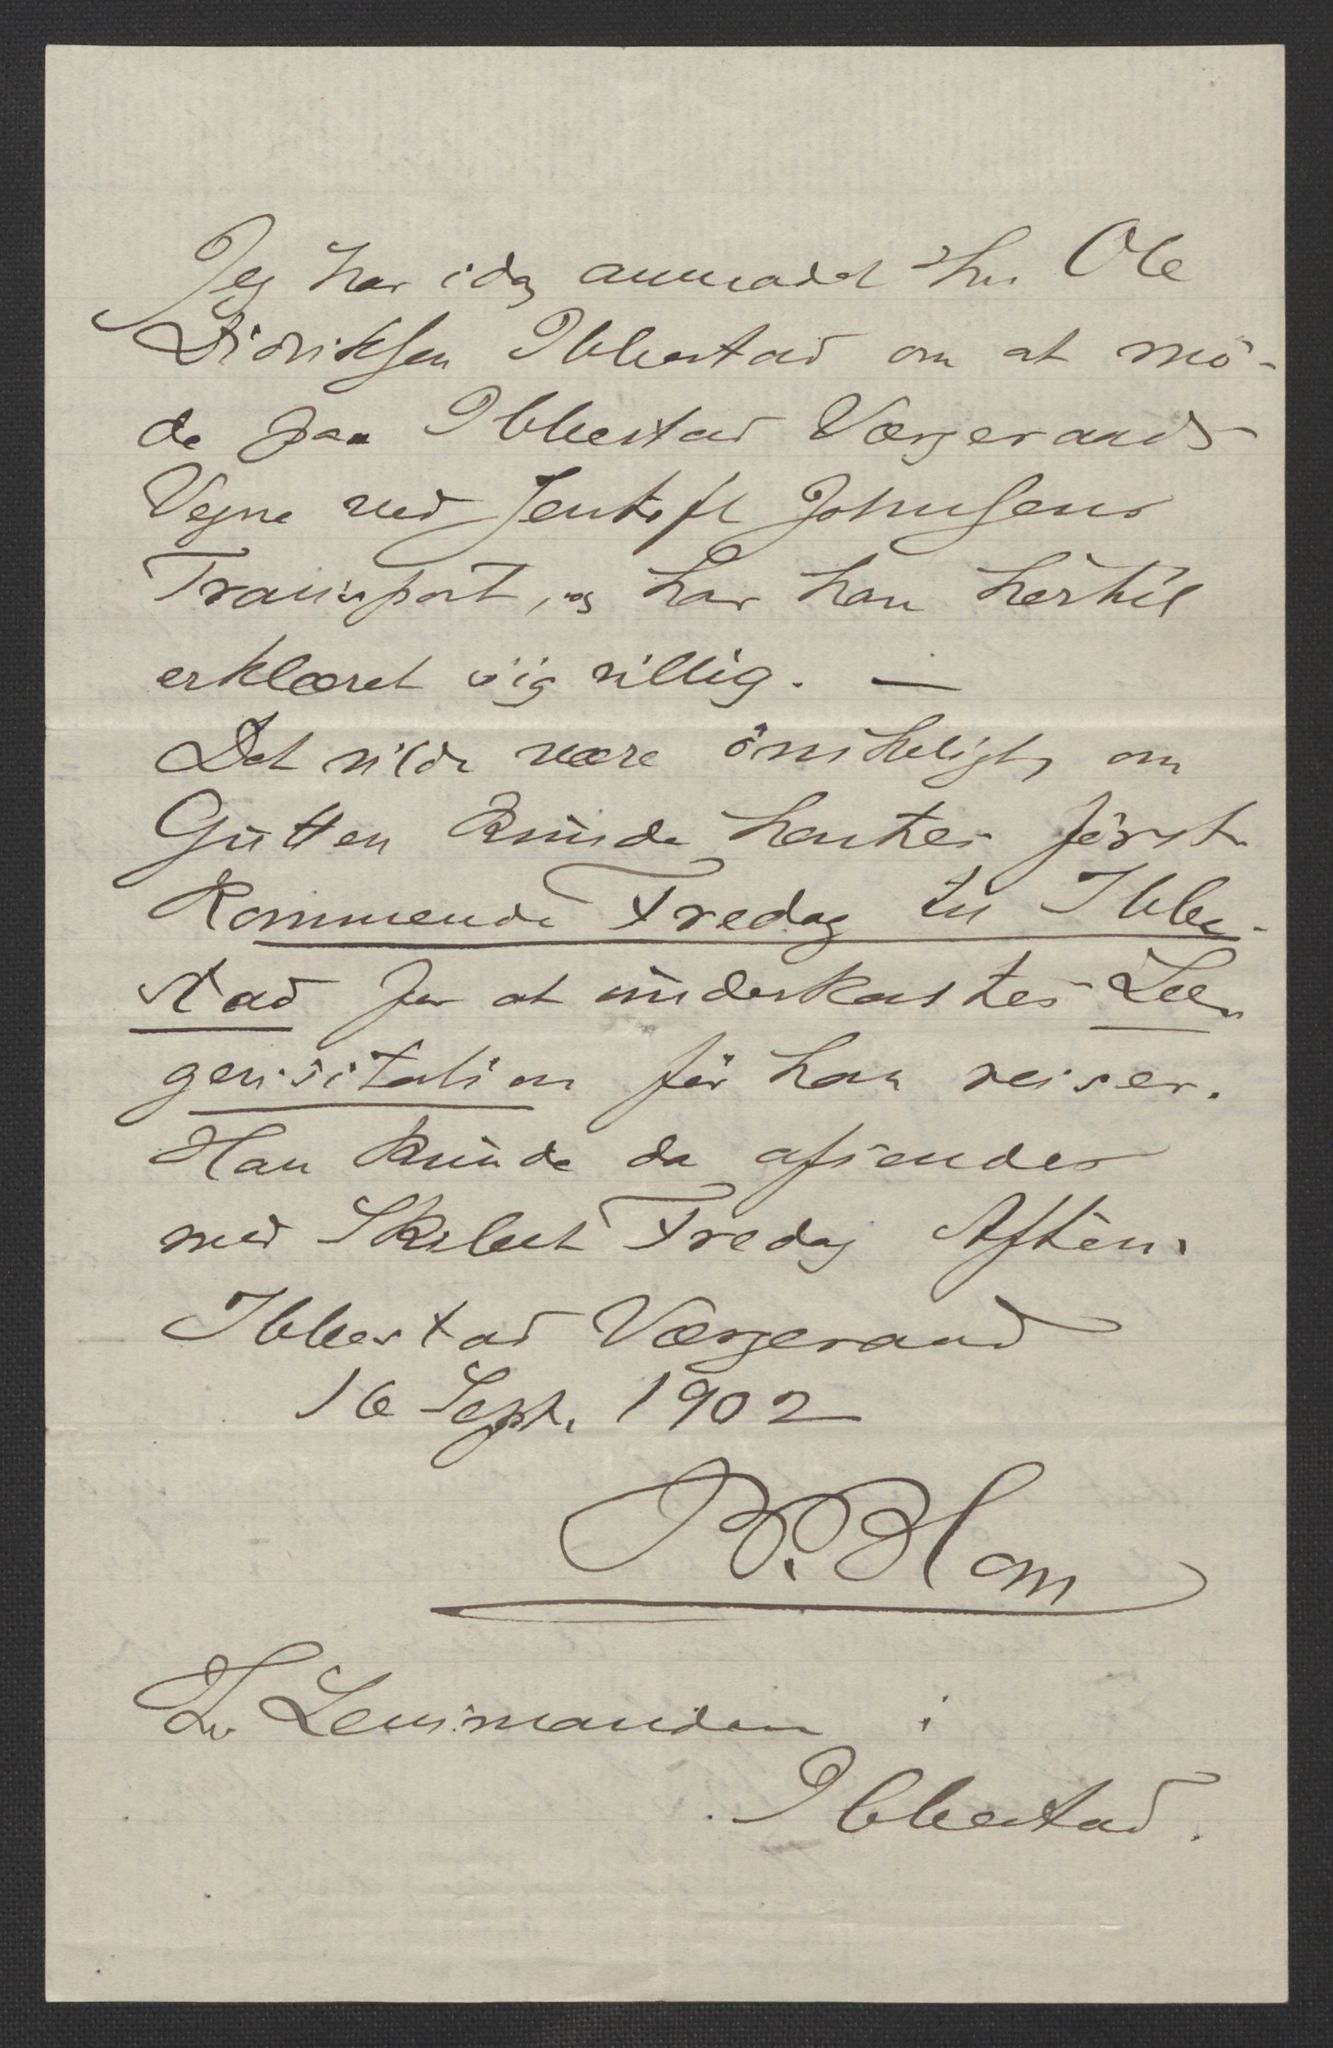 Jeg har idag anmodet hr. Ole
Didriksen Ibbestad om at mö-
de paa Ibbestad Værgeraads
Vegne ved Jentoft Johnsens
Transport, og har han hertil
erklæret sig villig. —
Det vilde være önskeligt, om
Gutten kunde hentes först-
kommende Fredag til Ibbe-
stad for at underkastes Læ-
gevisitation för han reiser.
Han kunde da afsendes
med Skrbut Fredag Aften.
Ibbestad Værgeraad
16 Sept. 1902
B. Blom
Hr Lensmanden i
Ibbestad.